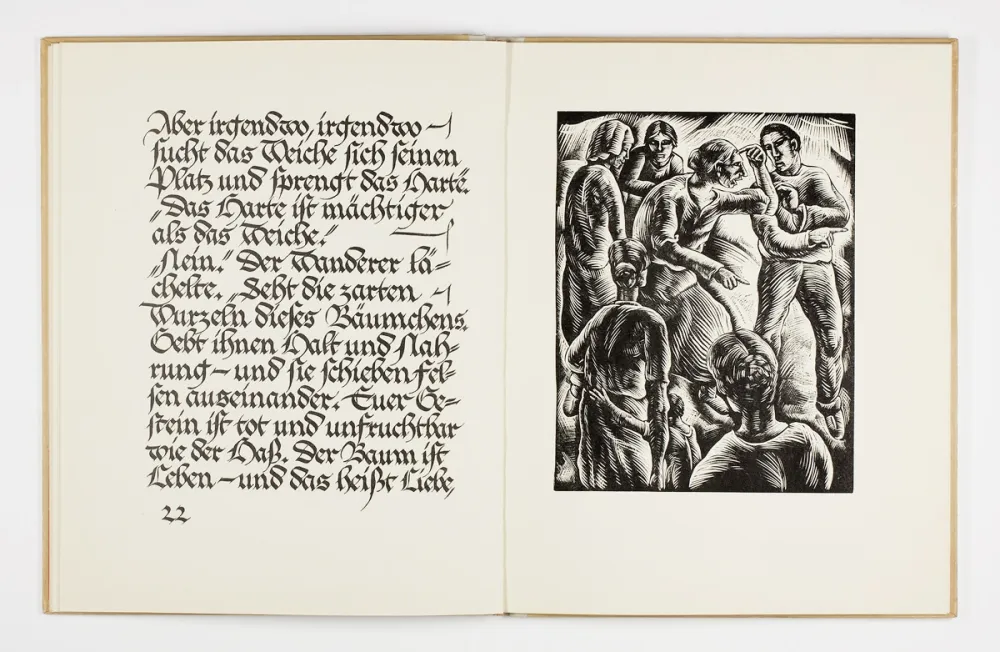 Aber irgendwo, irgendwo –
sucht das Weiche sich seinen
Platz und sprengt das Harte.
„Das Harte ist mächtiger
als das Weiche.“
„Nein.“ Der Wanderer lä-
chelte. „Seht die zarten –
Wurzeln dieses Bäumchens.
Gebt ihnen Halt und Nah-
rung – und sie schieben Fel-
sen auseinander. Euer Ge-
stein ist tot und unfruchtbar
wie der Haß. Der Baum ist
Leben – und das heißt Liebe,
22